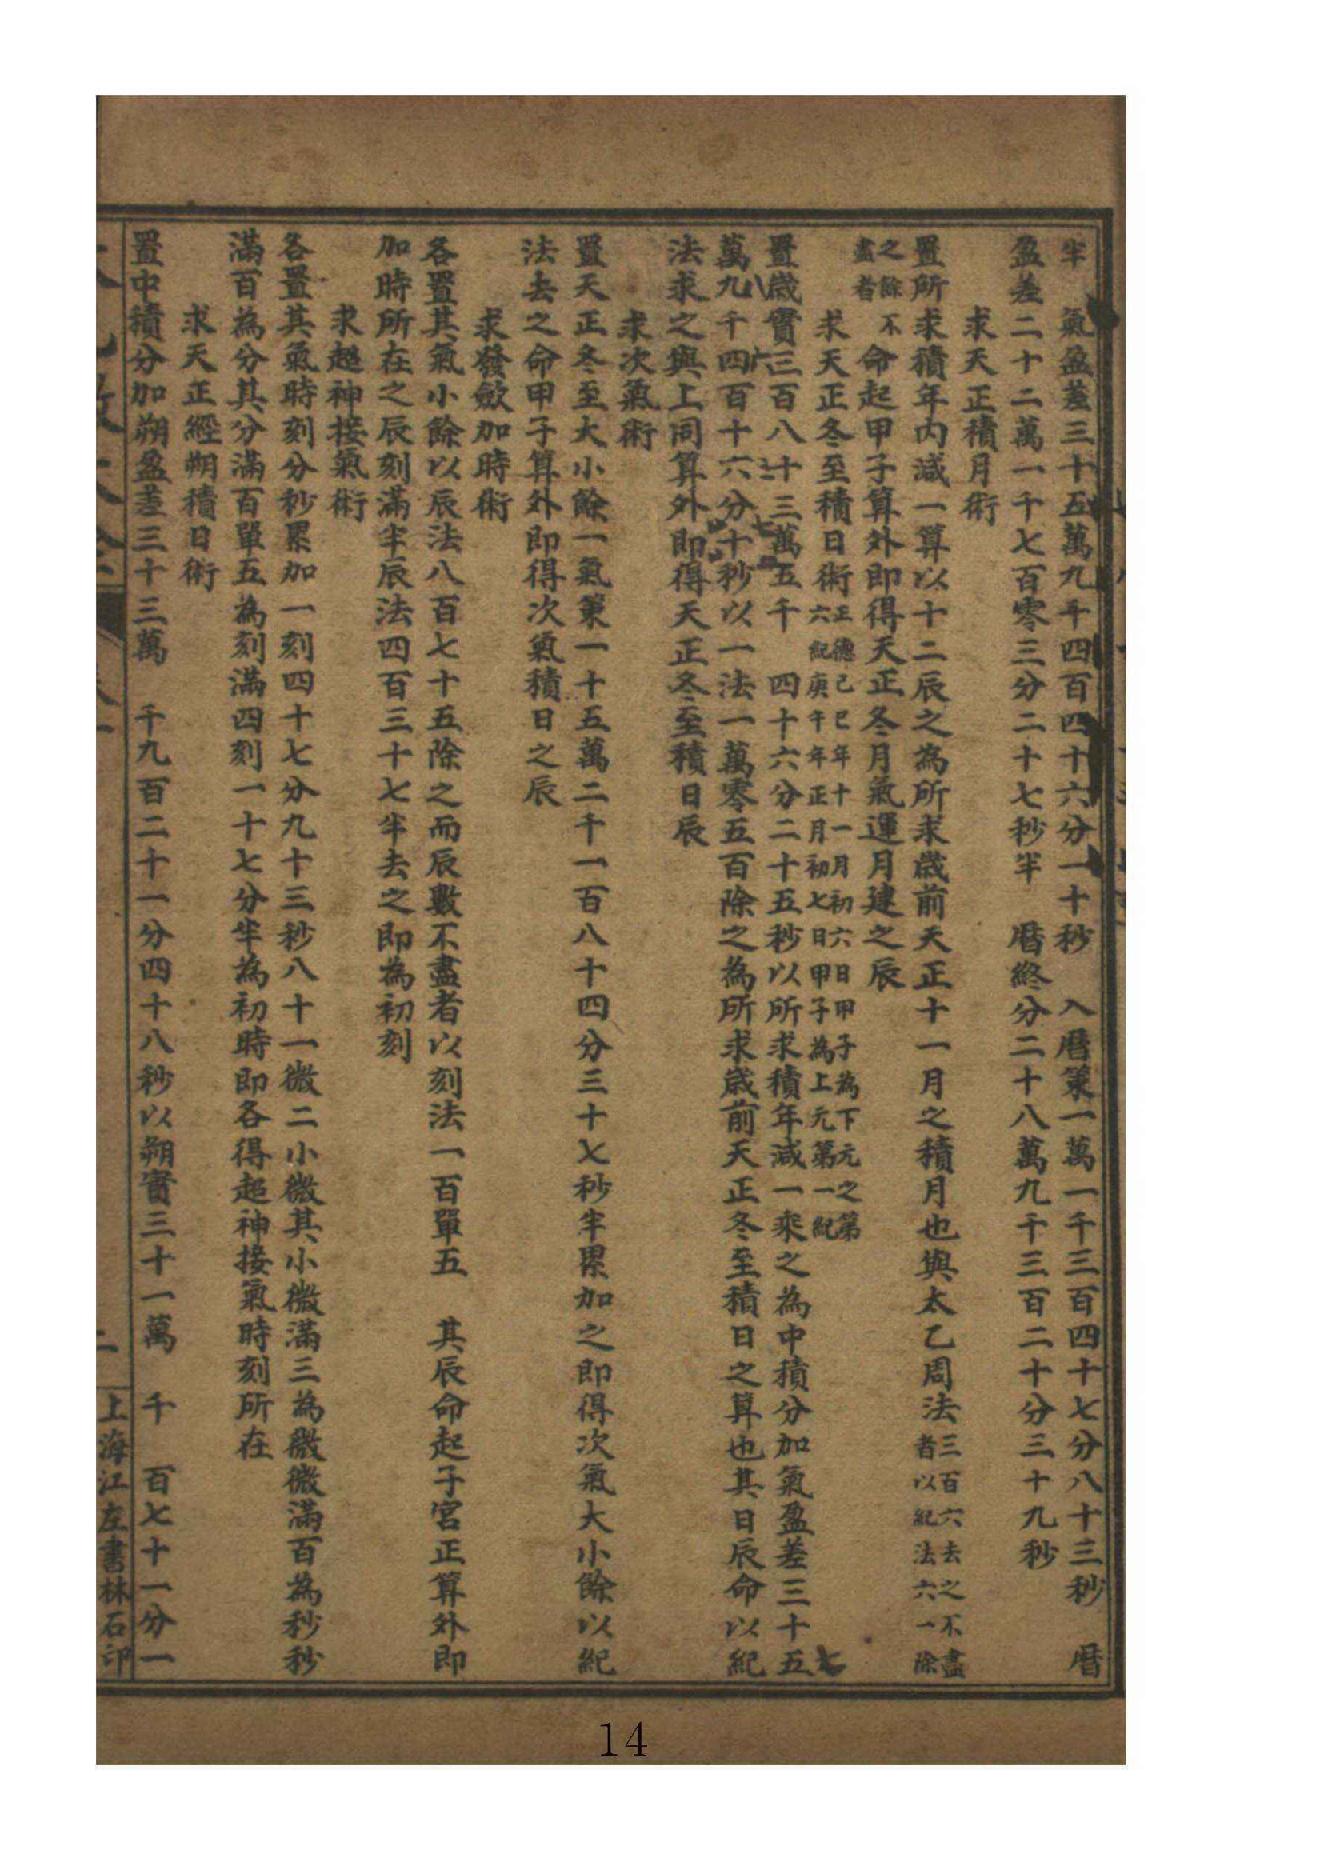 半　氣盈差三十五萬九千四百四十六分一十秒　入曆策一萬一千三百四十七分八十三秒　曆
盈差二十二萬一千七百零三分二十七秒半　曆終分二十八萬九千三百二十分三十九秒
求天正積月術
置所求積年內減一算以十二辰之為所求歲前天正十一月之積月也與太乙周法三百六去之不盡者以紀法六一除
之餘不盡者命起甲子算外即得天正冬月氣運月建之辰
求天正冬至積日術正德己巳年十一月初六日甲子為下元之第六紀庚午年正月初七日甲子為上元第一紀
置歲實三百八十三萬五千　四十六分二十五秒以所求積年減一乘之為中積分加氣盈差三十五
萬九千四百十六分十秒以一法一萬零五百除之為所求歲前天正冬至積日之算也其日辰命以紀
法求之與上同算外即得天正冬至積日辰
求次氣術
置天正冬至大小餘一氣策一十五萬二千一百八十四分三十七秒半累加之即得次氣大小餘以紀
法去之命甲子算外即得次氣積日之辰
求發斂加時術
各置其氣小餘以辰法八百七十五除之而辰數不盡者以刻法一百單五　其辰命起子宮正算外即
加時所在之辰刻滿半辰法四百三十七半去之即為初刻
求超神接氣術
各置其氣時刻分秒累加一刻四十七分九十三秒八十一微二小微其小微滿三為微微滿百為秒秒
滿百為分其分滿百單五為刻滿四刻一十七分半為初時即各得超神接氣時刻所在
求天正經朔積日術
置中積分加朔盈差三十三萬　千九百二十一分四十八秒以朔實三十一萬　千　百七十一分一
二
上海江左書林石印
14